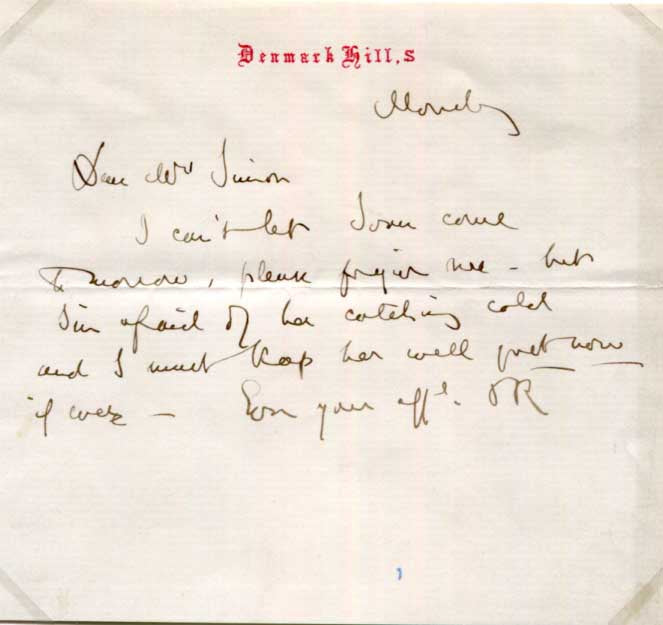 Denmark Hill, S
Monday
Dear Mrs Simon
I can't let Joan come
tomorrow, please forgive me - but
I'm afraid of her catching cold
and I must keep her well just now
if ever - Ever your affe. JR